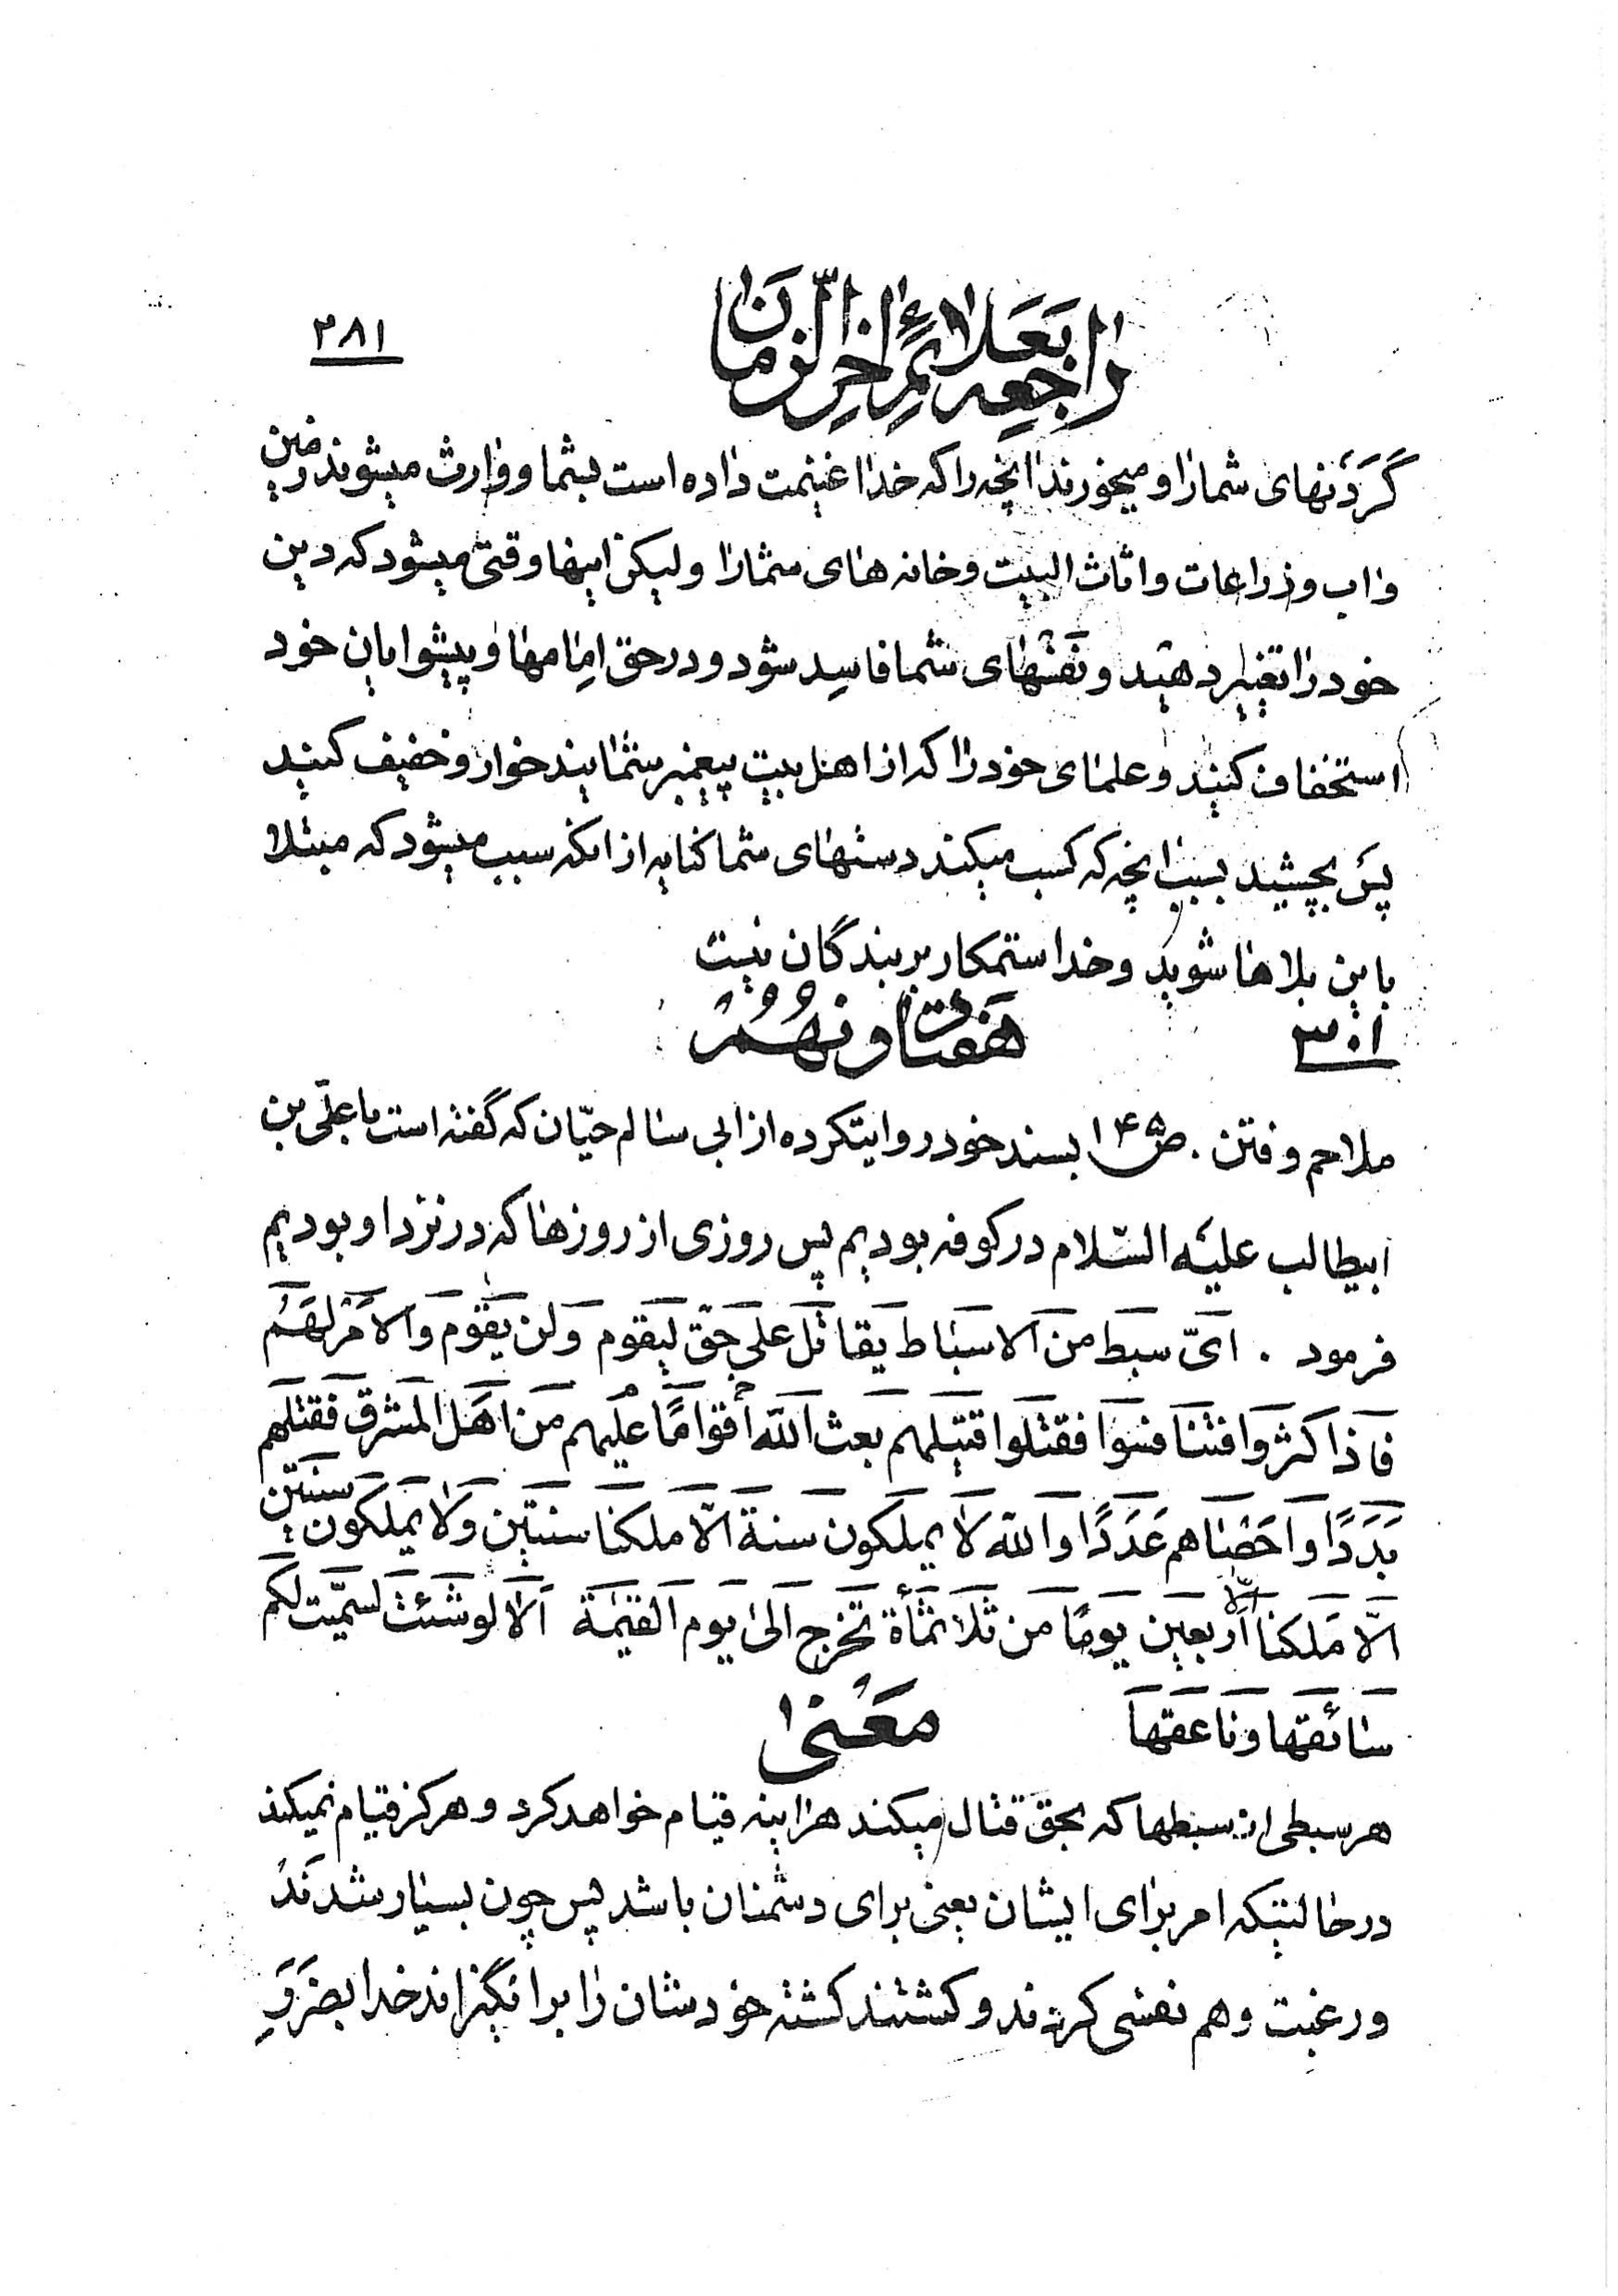 راجعه بعلائم اخر الزمان ۳۸۱
گردنهای شما را و میخورند انچه را که خدا غنیمت داده است بشما و وارث میشوند زمین
و اب و زراعات و اثاث البیت و خانه های شما را و لیکن اینها وقتی میشود که دین
خود را تغییر دهید و نفسهای شما فاسد شود و در حق امامها و پیشوایان خود
استخفاف کنید و علمای خود را که از اهل بیت پیغمبر شمایند خوار و خفیف کنید
پس بچشید بسبب انچه که کسب میکند دستهای شما کنایه از انکه سبب میشود که مبتلا
باین بلاها شوید و خدا ستمکار بر بندگان نیست
۳۰۱ هفتاد و نهم
ملاحم و فتن . ص ۱۴۵ بسند خود روایتکرده از ابی سالم حیّان که گفته است با علی بن
ابیطالب علیه السّلام در کوفه بودیم پس روزی از روزها که در نزد او بودیم
فرمود . ایّ سبط من الاسباط یقاتل علی حقّ لیقوم ولن یقوم والامر لهم
فاذا کثروا فتنافسوا فقتلوا قتیلهم بعث الله أقوامًا علیهم من اهل المشرق فقتلهم
بددًا واحصاهم عددًا والله لا یملکون سنة الّا ملکنا سنتین ولا یملکون سنتین
الّا ملکنا اربعین یومًا من ثلاثمأة تخرج الی یوم القیمة الا لو شئت لسمّیت لکم
سائقها وناعقها معنی
هر سبطی از سبطها که بحق قتال میکند هراینه قیام خواهد کرد و هرکز قیام نمیکند
در حالتیکه امر برای ایشان یعنی برای دشمنان باشد پس چون بسیار شدند
و رغبت و هم نفسی کردند و کشتند کشته خودشان را برانگیزاند خدا بضرر